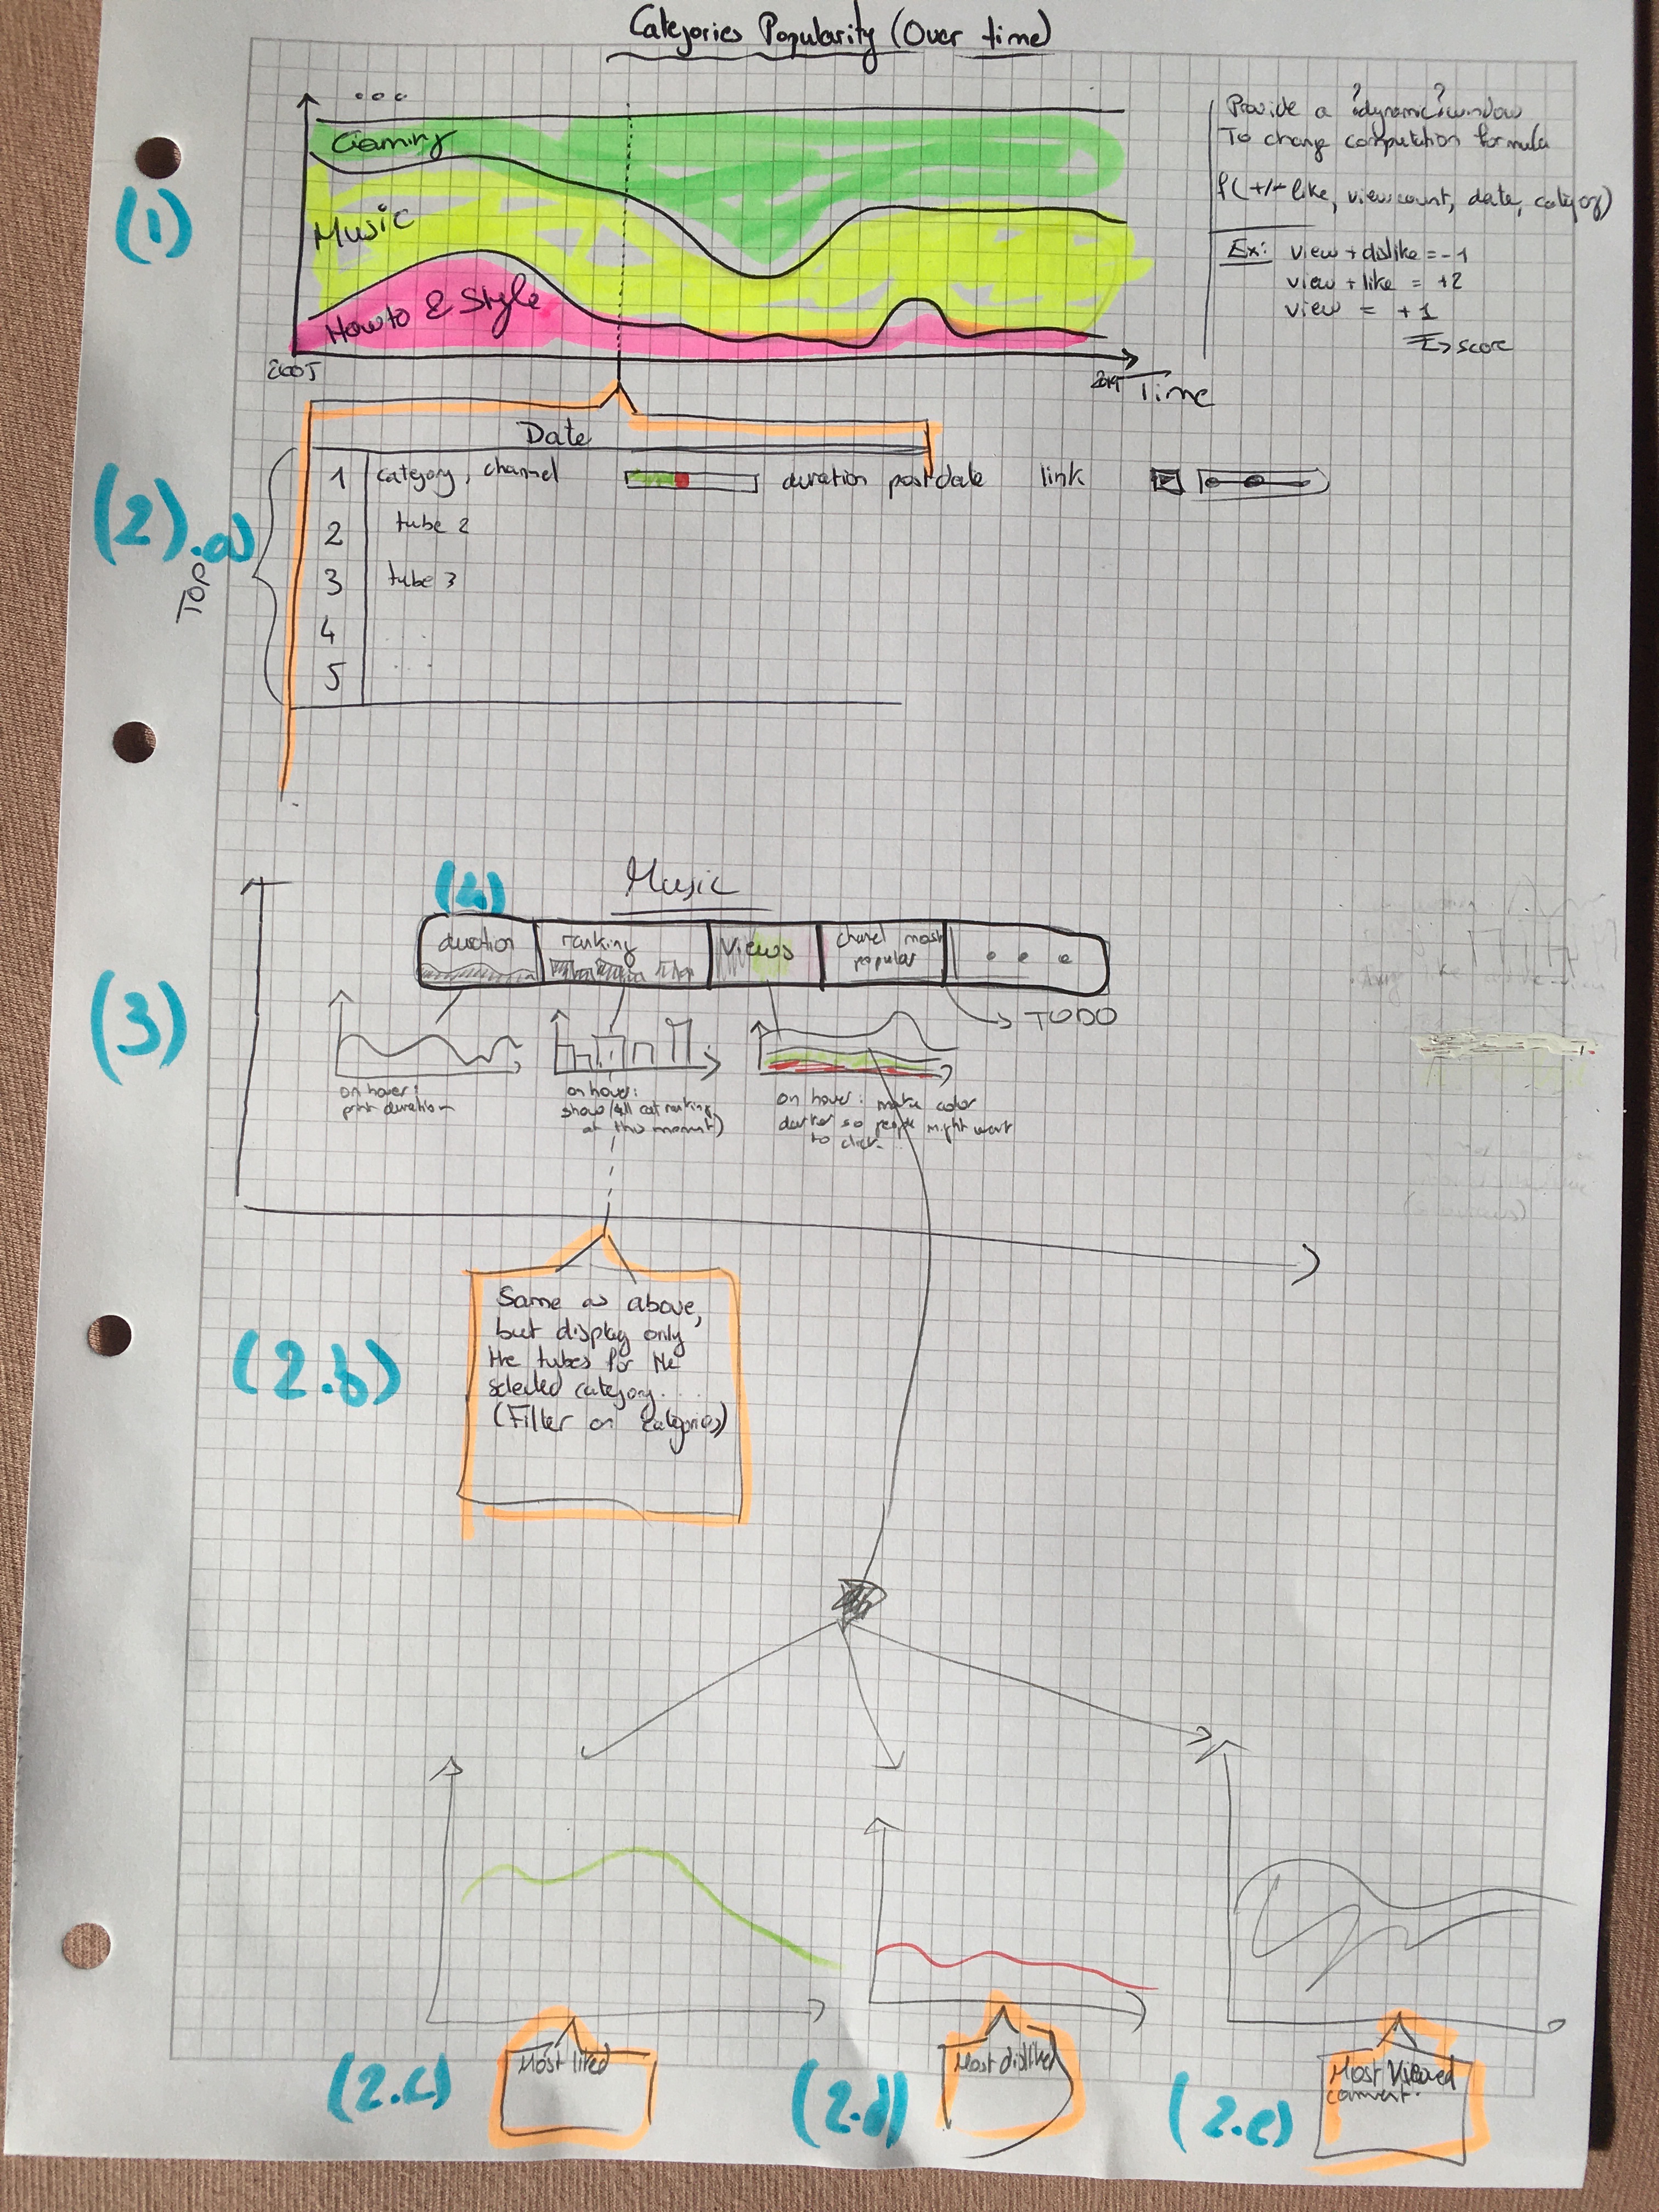 Categories Popularity (Over time)
Gaming
Music
Howto & Style
2005
Time
Provide a ?dynamic? window
To change computation formula
f(+/- like, viewcount, date, category)
Ex: view + dislike = -1
view + like = +2
view = +1
=> score
(1)
Date
(2).a)
TOP
1 category, channel duration postdate link
2 tube 2
3 tube 3
4 ...
5 ...
Music
(4)
duration ranking views chanel most popular ...
(3)
TODO
on hover:
print duration
on hover:
show (all cat ranking
at this moment)
on hover: make color
darker so people might want
to click.
(2.b)
Same as above,
but display only
the tubes for the
selected category...
(Filter on categories)
(2.c)
Most liked
(2.d)
Most disliked
(2.e)
Most Viewed
comment.